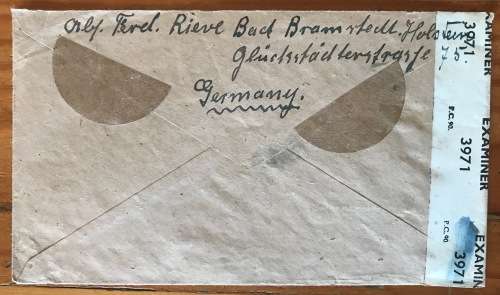 Abs. Ferd. Rieve Bad Bramstedt, Holstein
Glückstädterstrasse
Germany.
EXAMINER
3971
P.C. 90.
EXAMINER
3971
P.C. 90.
EXAMIN
3971